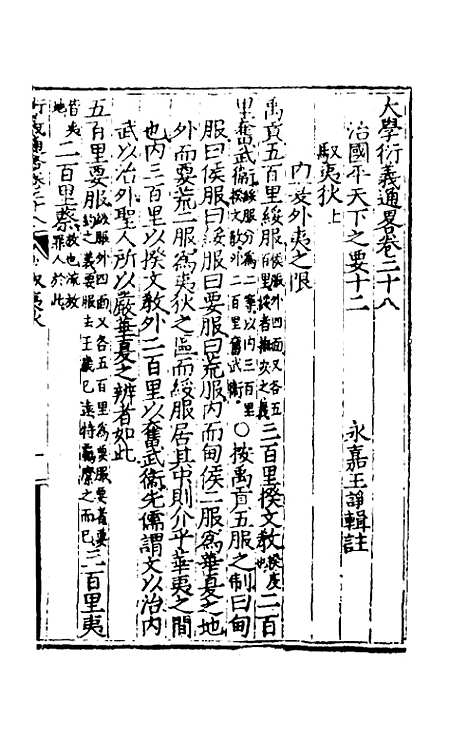 大學衍義通畧卷二十八
永嘉王諍輯註
治國平天下之要十二
馭夷狄上
内夏外夷之限
禹貢五百里綏服侯服外四面又各五百里綏者撫安之義三百里揆文教揆度也二百
里奮武衛綏服分為二等以内三百里揆文教外二百里奮武衛○按禹貢五服之制曰甸
服曰侯服曰綏服曰要服曰荒服内而甸侯二服為華夏之地
外而要荒二服為夷狄之區而綏服居其中則介乎華夷之間
也内三百里以揆文教外二百里以奮武衛先儒謂文以治内
武以治外聖人所以嚴華夏之辨者如此
五百里要服綏服外四面又各五百里為要服要者要約之義要服去王畿已遠特羈縻之而已三百里夷
皆夷地二百里蔡放也流放罪人於此